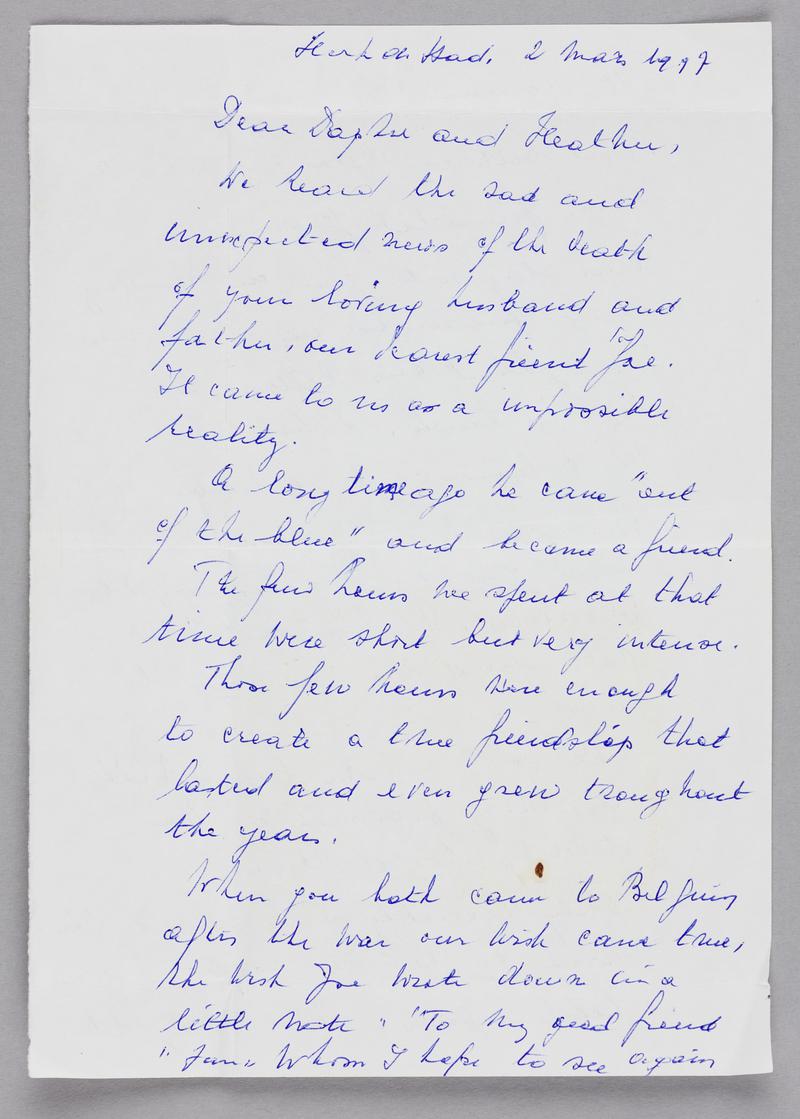 Herk de Stad, 2 Mars 1997
Dear Daphne and Heather,
We heard the sad and
unexpected news of the death
of your loving husband and
father, our dearest friend "Joe.
It came to us as a impossible
reality.
A long time ago he came "out
of the blue" and became a friend.
The few hours we spent at that
time were short but very intense.
Those few hours were enough
to create a true friendship that
lasted and even grew troughout
the years.
When you both came to Belgium
after the war our wish came true,
the wish Joe wrote down in a
little note "To my good friend
" Jean" whom I hope to see again